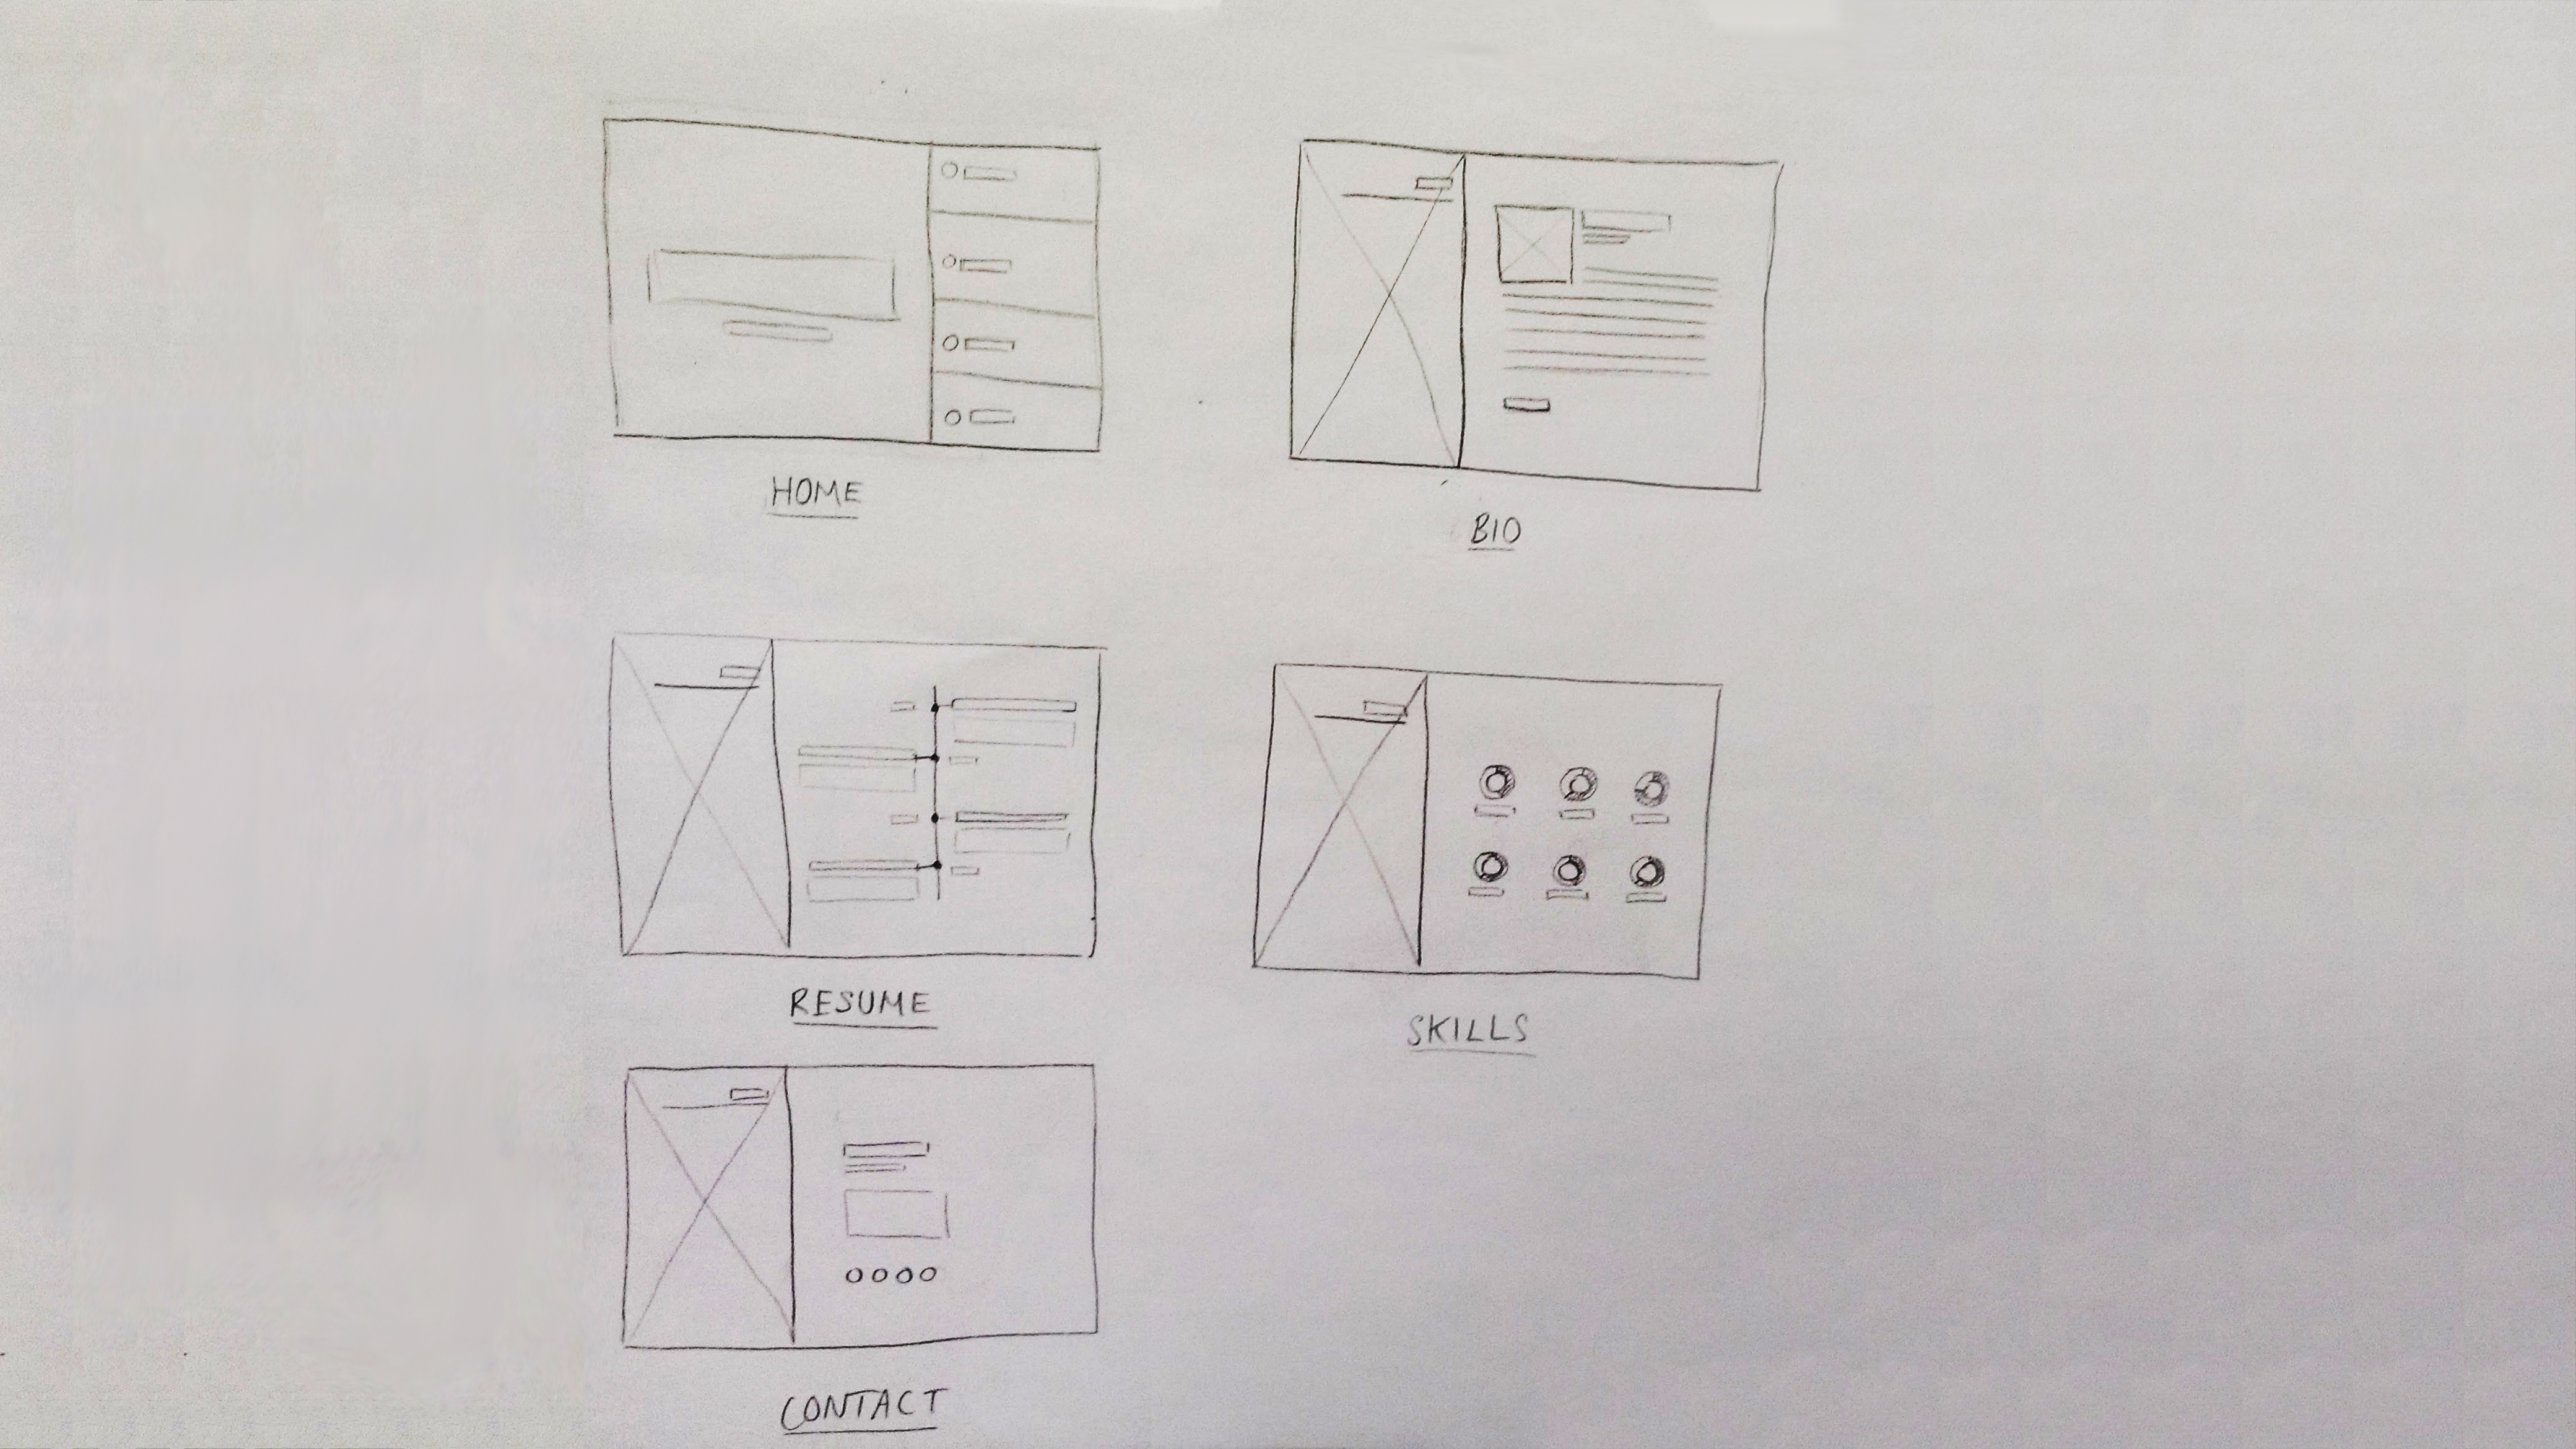 HOME
BIO
RESUME
SKILLS
CONTACT